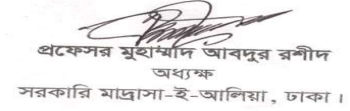 প্রফেসর মুহাম্মাদ আবদুর রশীদ
অধ্যক্ষ
সরকারি মাদ্রাসা-ই-আলিয়া, ঢাকা।